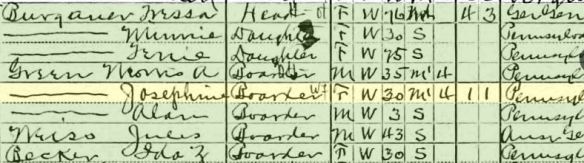 Burgauer Tressa Head F W 76 4 3
—— Minnie Daughter F W 30 S Pennsylva
—— Daughter F W 25 S Pennsy
Green Morris A Boarder M W 35 M 4 Pennsy
—— Josephine Boarder F W 30 M 4 1 1 Pennsyl
—— Alan Boarder M 3 S Pennsyl
Weiso Jules Boarder M W 43 S
Becker Ida Z Boarder F W 30 S Pennsy